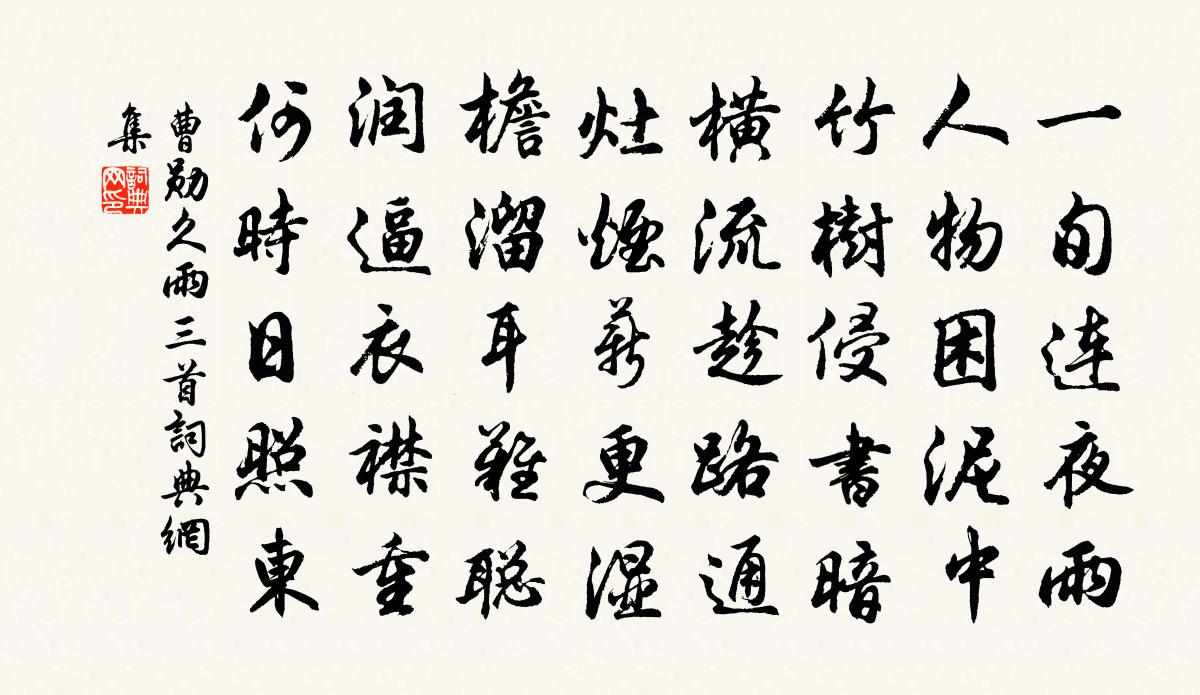 一旬连夜雨
人物困泥中
竹樹侵書暗
橫流趁路通
灶煙薪更湿
檐溜耳難聪
润逼衣襟重
何時日照東
曹勛久雨三首詞典網
集
詞典
网印